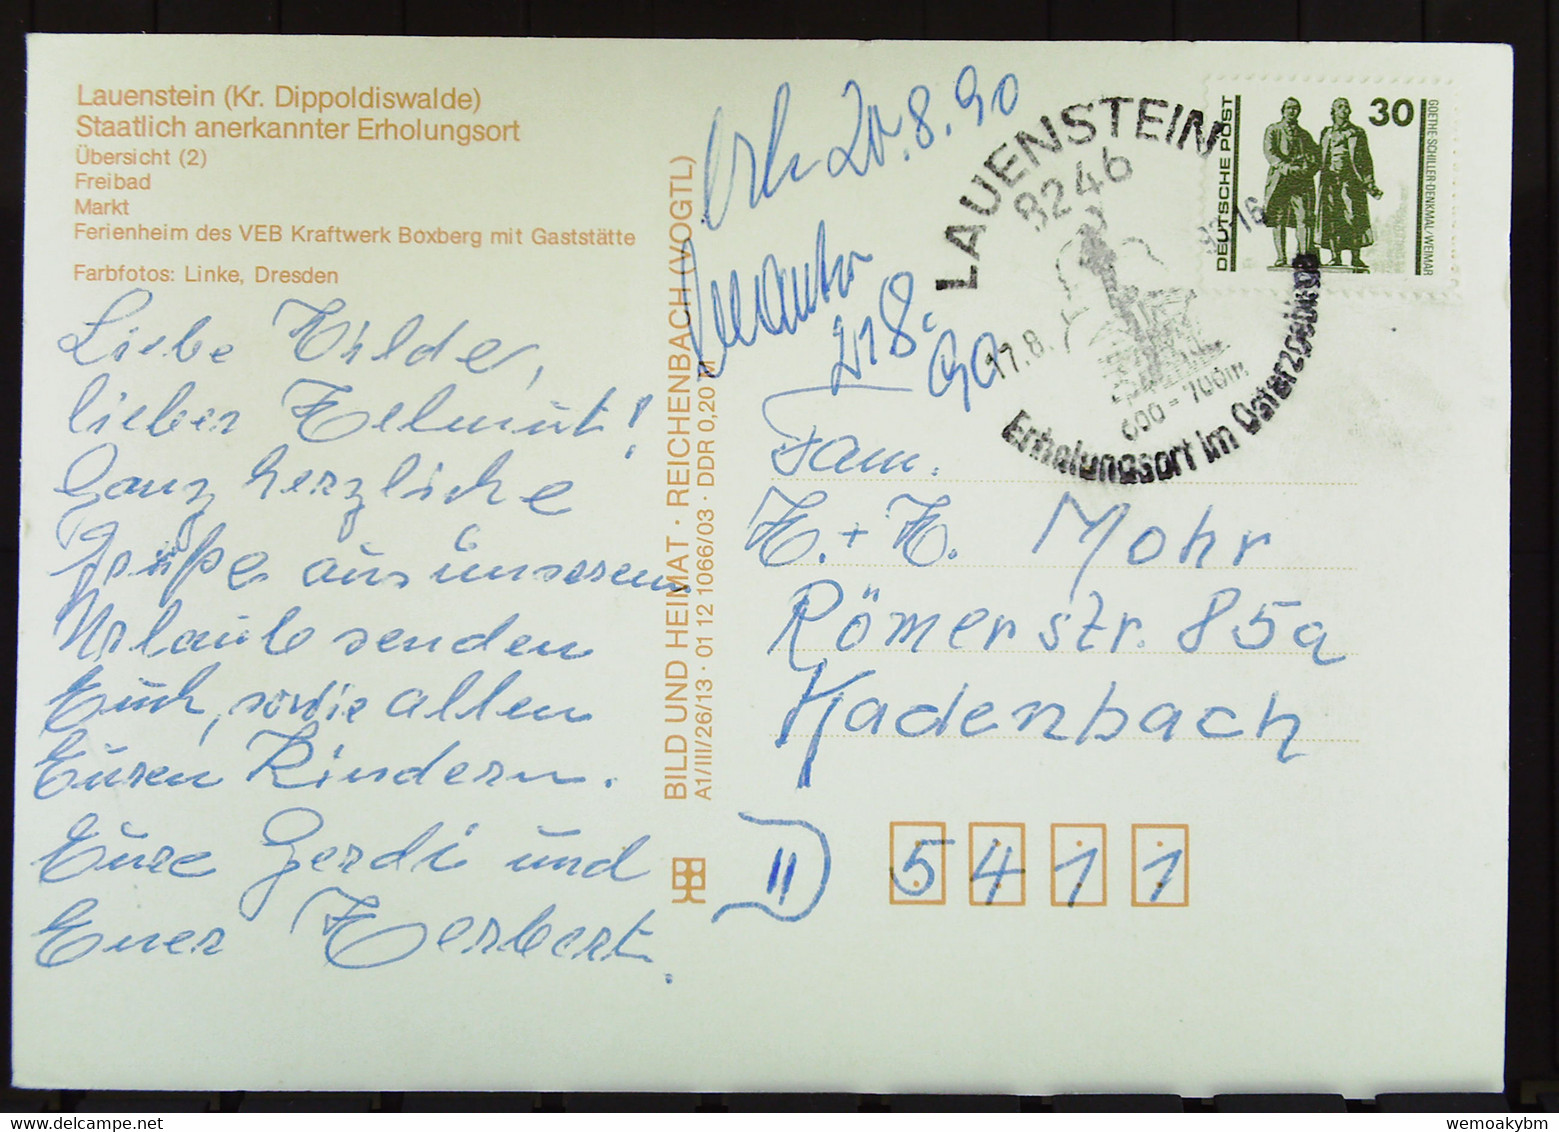 Lauenstein (Kr. Dippoldiswalde)
Staatlich anerkannter Erholungsort
Übersicht (2)
Freibad
Markt
Ferienheim des VEB Kraftwerk Boxberg mit Gaststätte
Farbfotos: Linke, Dresden
Liebe Hilde,
lieber Helmut!
Ganz herzliche
Grüße aus unserem
Urlaub senden
Euch, sowie allen
Euren Kindern.
Eure Gerdi und
Euer Herbert.
BILD UND HEIMAT · REICHENBACH (VOGTL)
A1/III/26/13 · 01 12 1066/03 · DDR 0,20 M
Erh 20.8.90
21.8.90
LAUENSTEIN
8246
17.8.
600-700m
Erholungsort im Osterzgebirge
DEUTSCHE POST
30
GOETHE-SCHILLER-DENKMAL/WEIMAR
Fam.
H. + H. Mohr
Römerstr. 85a
Kadenbach
D 11
5411
wemoakybm